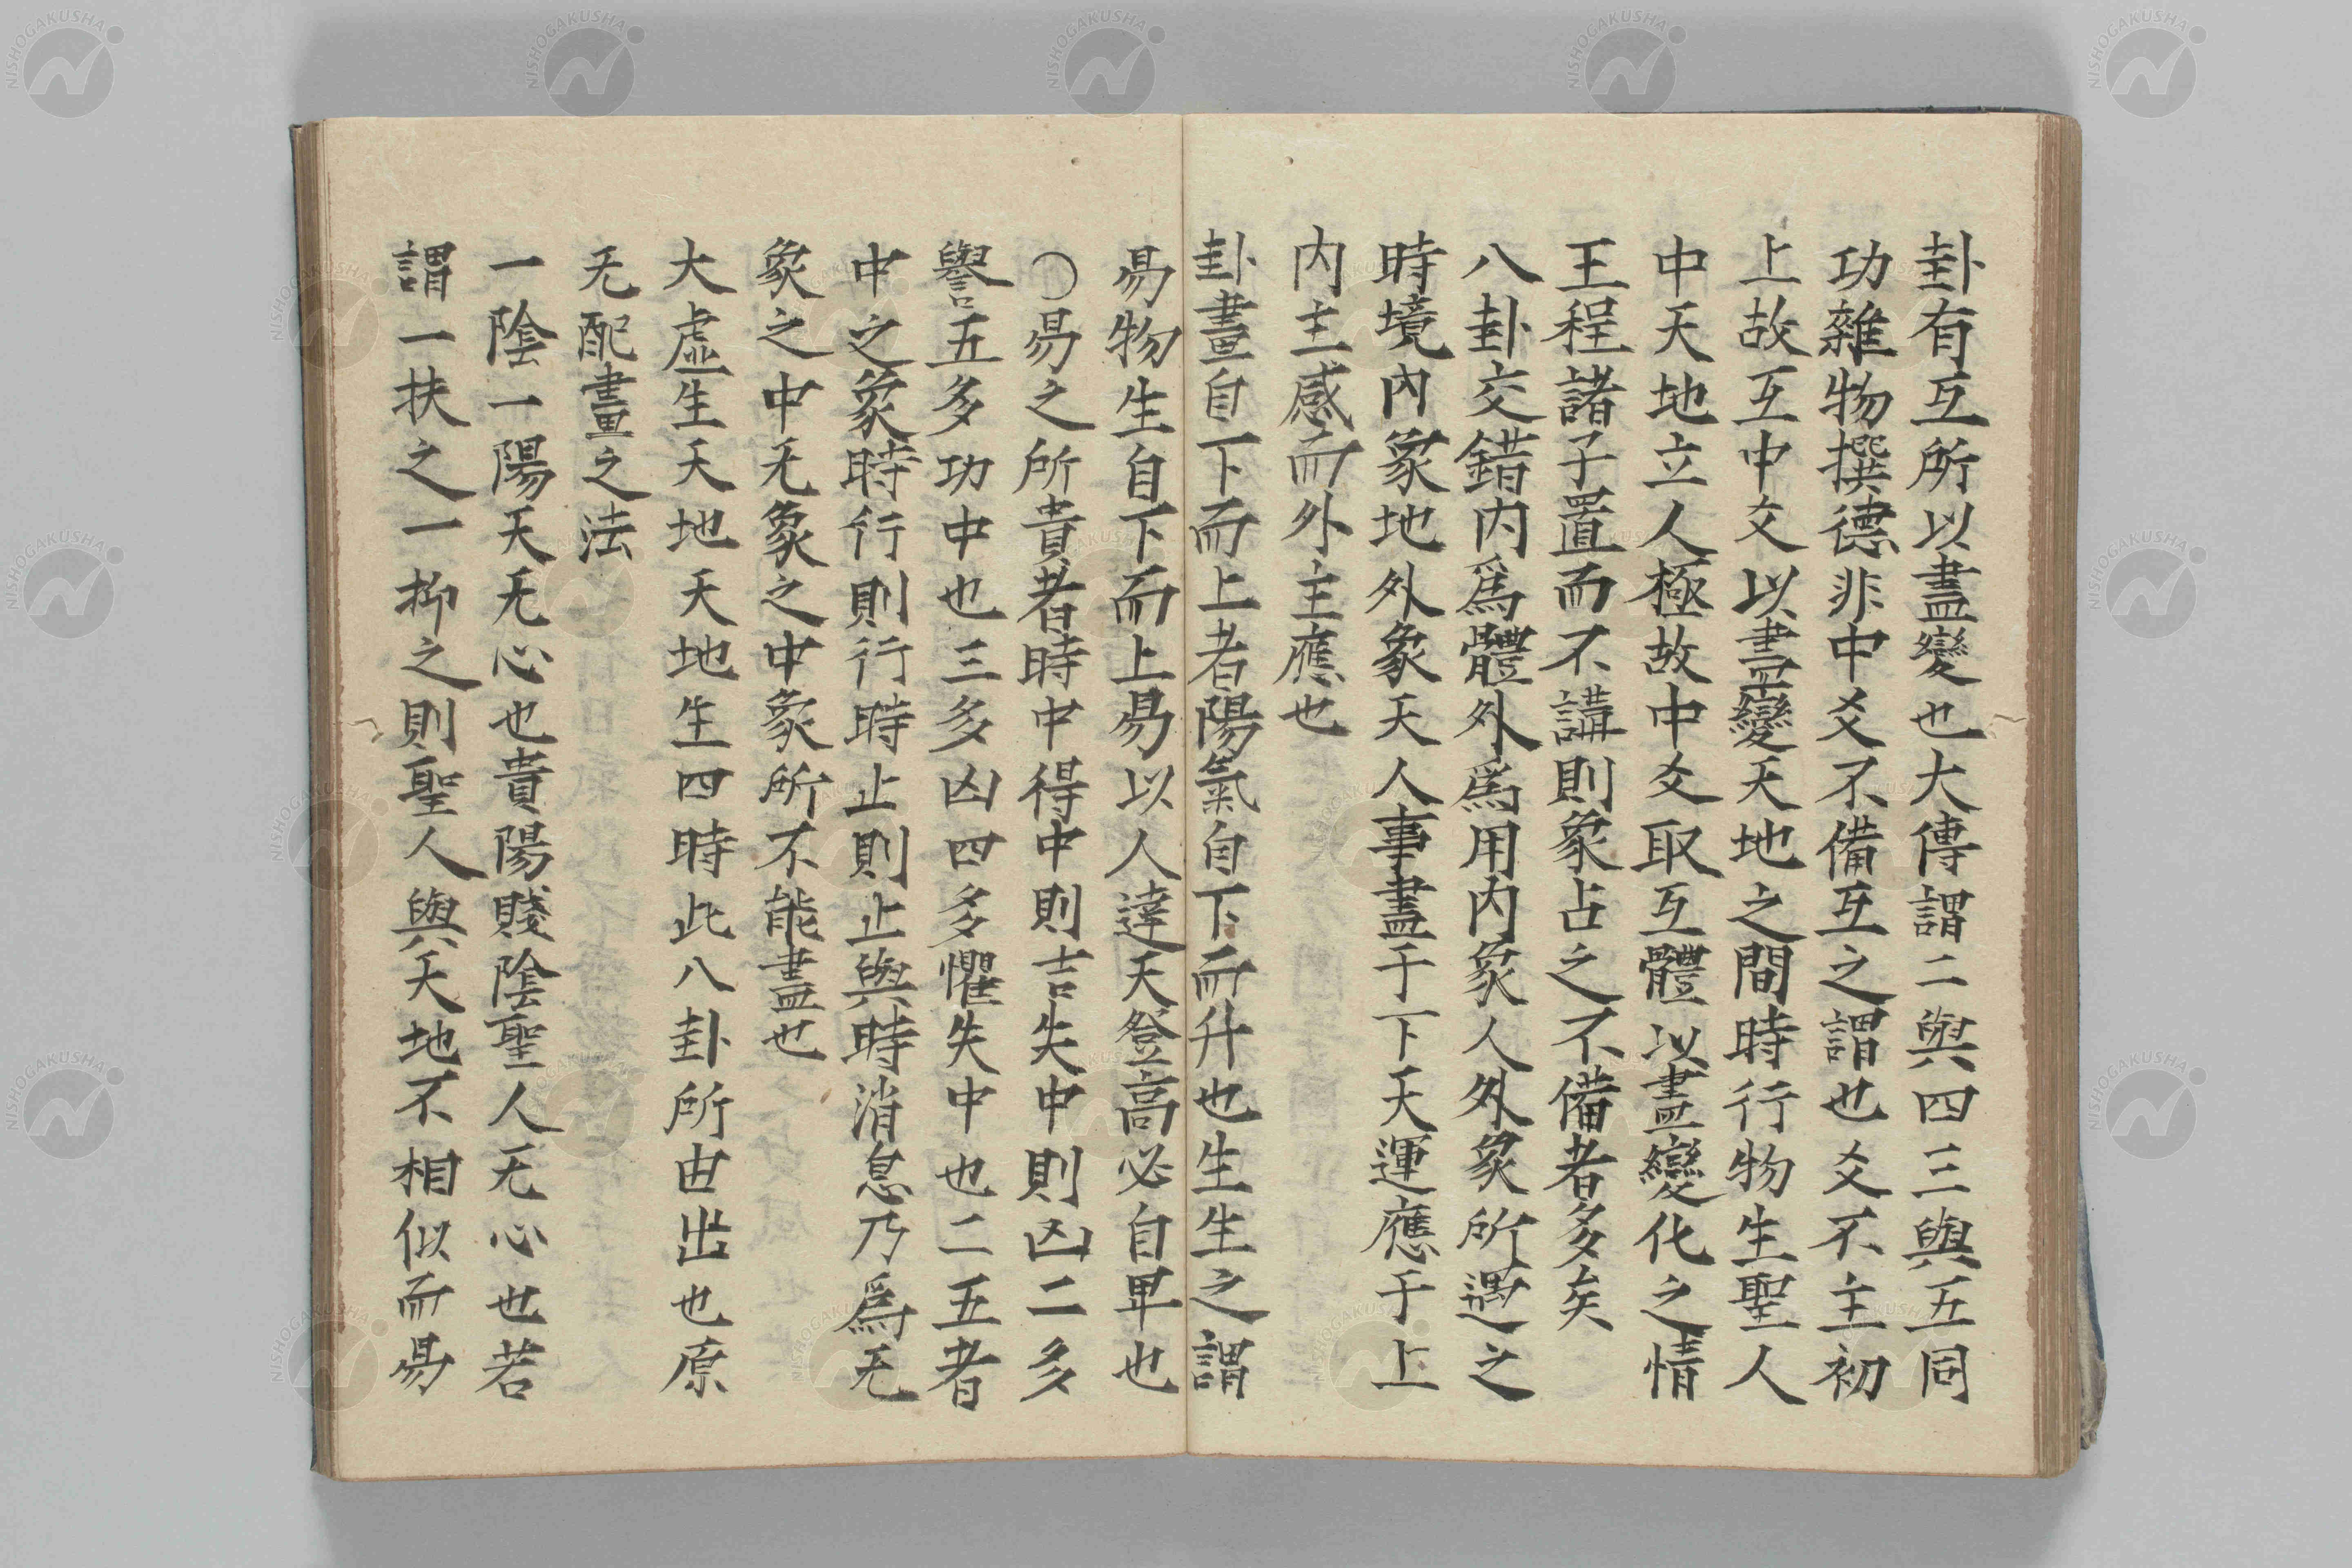 卦有互所以盡變也大傳謂二與四三與五同
功雜物撰德非中爻不備互之謂也爻不主初
上故互中爻以盡變天地之間時行物生聖人
中天地立人極故中爻取互體以盡變化之情
王程諸子置而不講則象占之不備者多矣
八卦交錯内爲體外爲用内象人外象所遇之
時境内象地外象天人事盡于下天運應于上
内主感而外主應也
卦畫自下而上者陽氣自下而升也生生之謂
易物生自下而上易以人達天登高必自卑也
○易之所貴者時中得中則吉失中則凶二多
譽五多功中也三多凶四多懼失中也二五者
中之象時行則行時止則止與時消息乃爲无
象之中无象之中象所不能盡也
大虛生天地天地生四時此八卦所由出也原
无配畫之法
一陰一陽天无心也貴陽賤陰聖人无心也若
謂一扶之一抑之則聖人與天地不相似而易
NISHOGAKUSHA